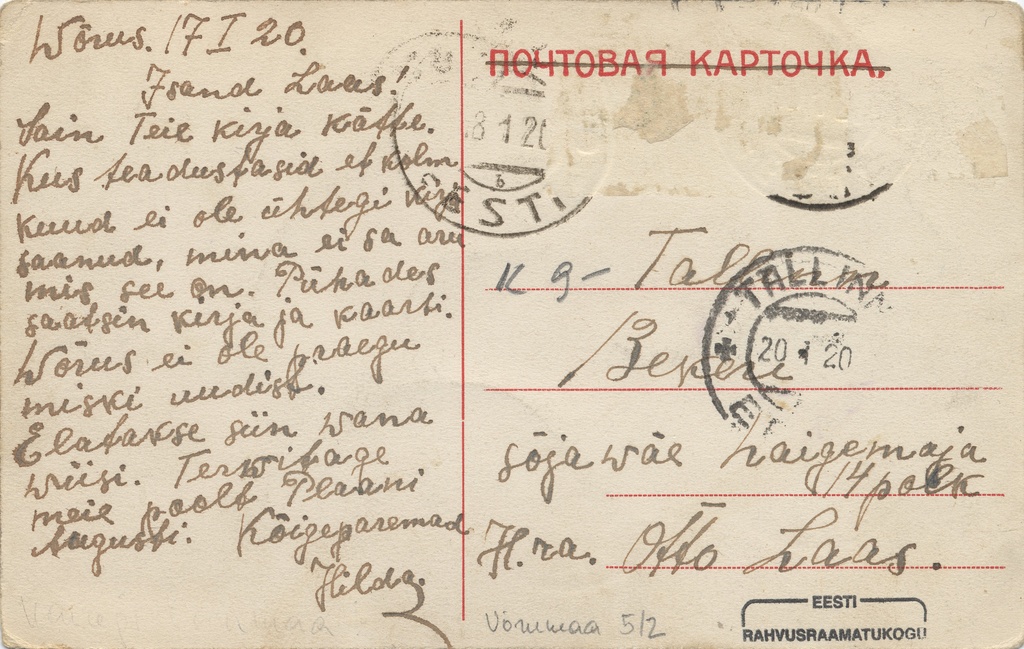 Wõrus. 17 I 20.
Isand Laas!
Sain Teie kirja kätte.
Kus teadustasid et kolm
kuud ei ole ühtegi kirja
saanud, mina ei sa aru
mis see on. Pühades
saatsin kirja ja kaarti.
Wõrus ei ole praegu
miski uudist.
Elatakse siin wana
wiisi. Terwitage
meie poolt Plaani
Augusti. Kõigeparemad
Hilda.
ПОЧТОВАЯ КАРТОЧКА.
8 1 20
b
EESTI
K 9 - Tallinn
TALLINN
20 1 20
Bekeri
sõjawäe haigemaja
14 polk
H.ra. Otto Laas.
Võrumaa 5/2
EESTI
RAHVUSRAAMATUKOGU